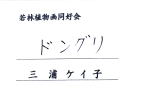 若林植物画同好会
ドングリ
三浦ケイ子